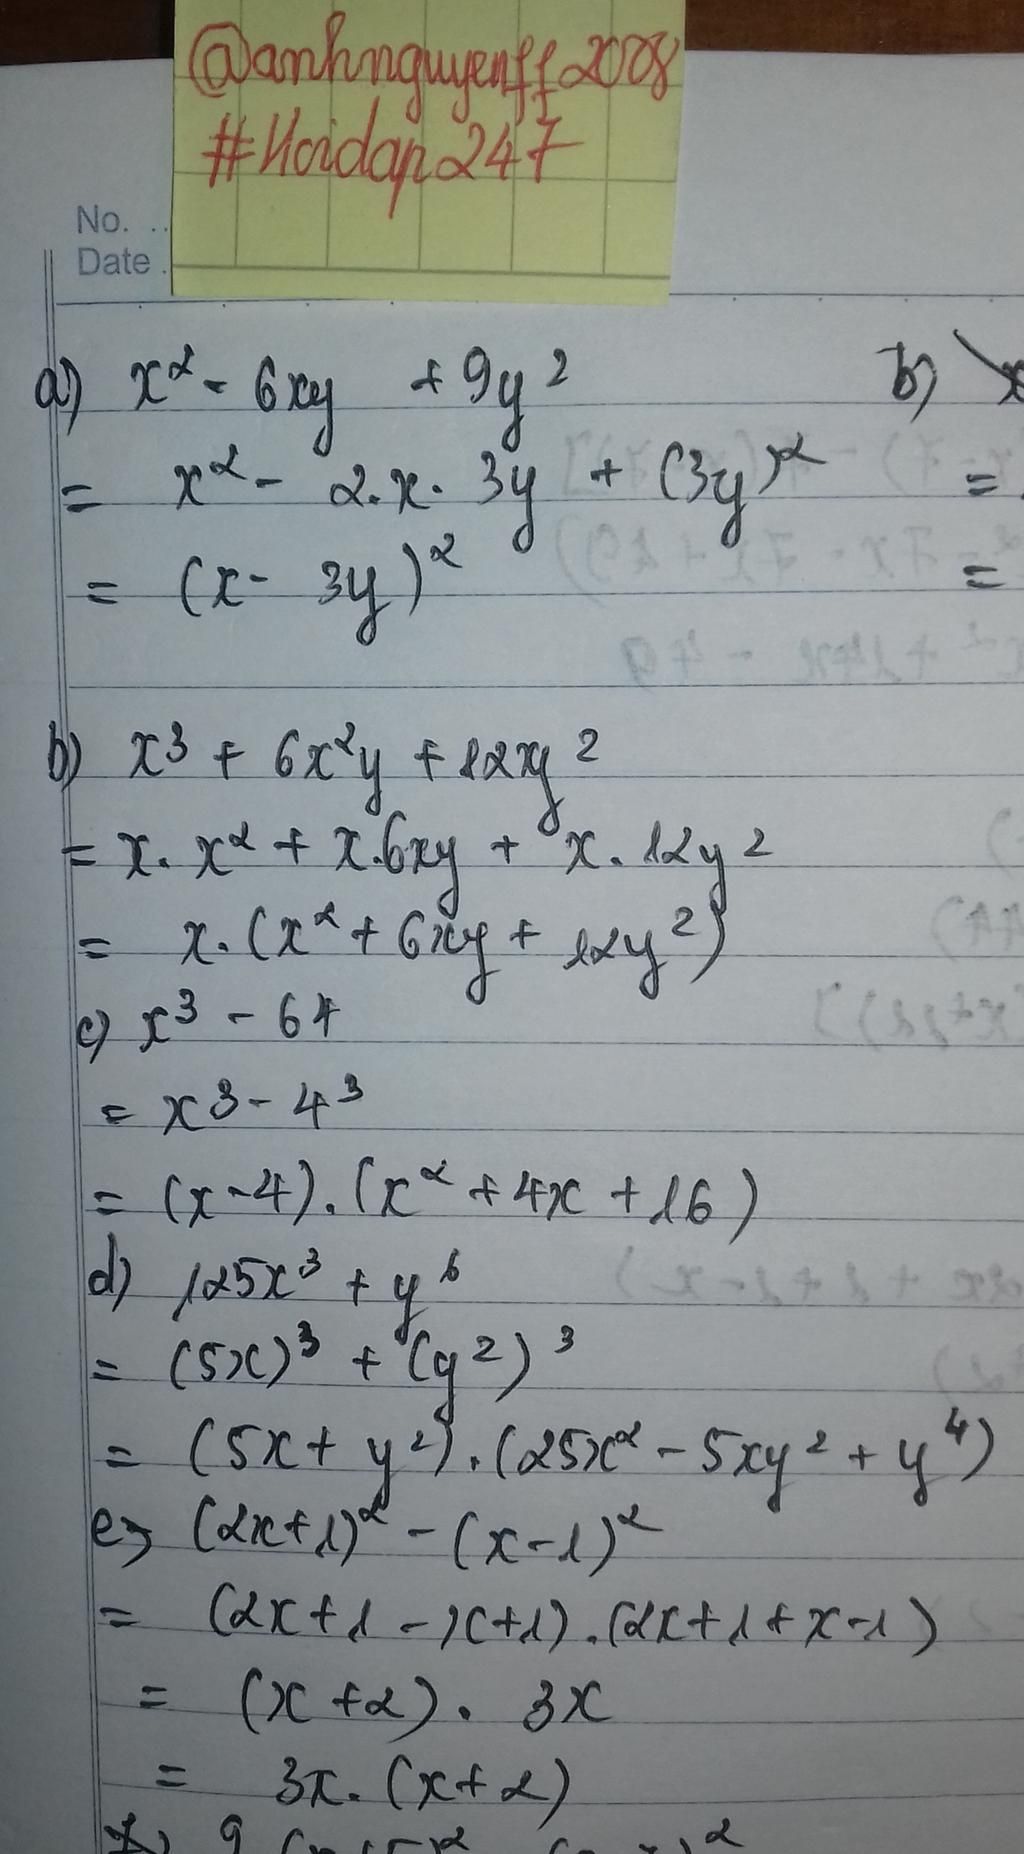 @anhnguyenff2008
#Hoidap247
No. ..
Date .
a) x² - 6xy + 9y²
= x² - 2.x. 3y + (3y)²
= (x - 3y)²
b) x
=
=
b) x³ + 6x²y + 12xy²
= x. x² + x.6xy + x. 12y²
= x. (x² + 6xy + 12y²)
c) x³ - 64
= x³ - 4³
= (x-4). (x² + 4x + 16)
d) 125x³ + y⁶
= (5x)³ + (y²)³
= (5x + y²). (25x² - 5xy² + y⁴)
e) (2x+1)² - (x-1)²
= (2x+1 - x+1). (2x+1+x-1)
= (x+2). 3x
= 3x. (x+2)